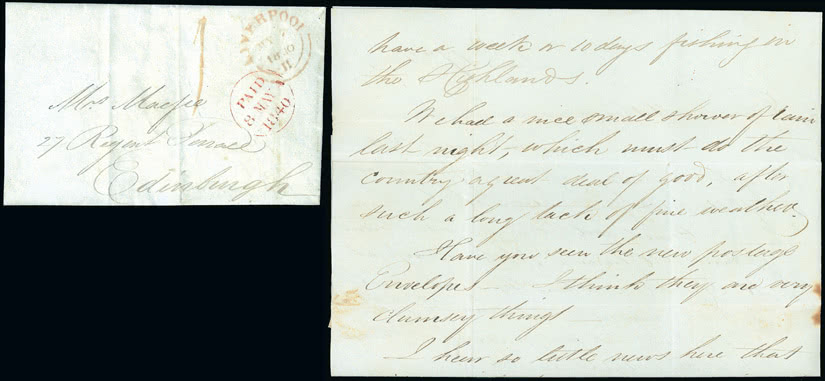 LIVERPOOL
MY 7
1840
H
1
PAID
8 MAY
1840
Mrs Macfie
27 Regent Terrace
Edinburgh
have a week or 10 days fishing in
the Highlands.
We had a nice small shower of rain
last night, which must do the
country a great deal of good, after
such a long tack of fine weather.
Have you seen the new postage
Envelopes — I think they are very
clumsey things
I hear so little news here that